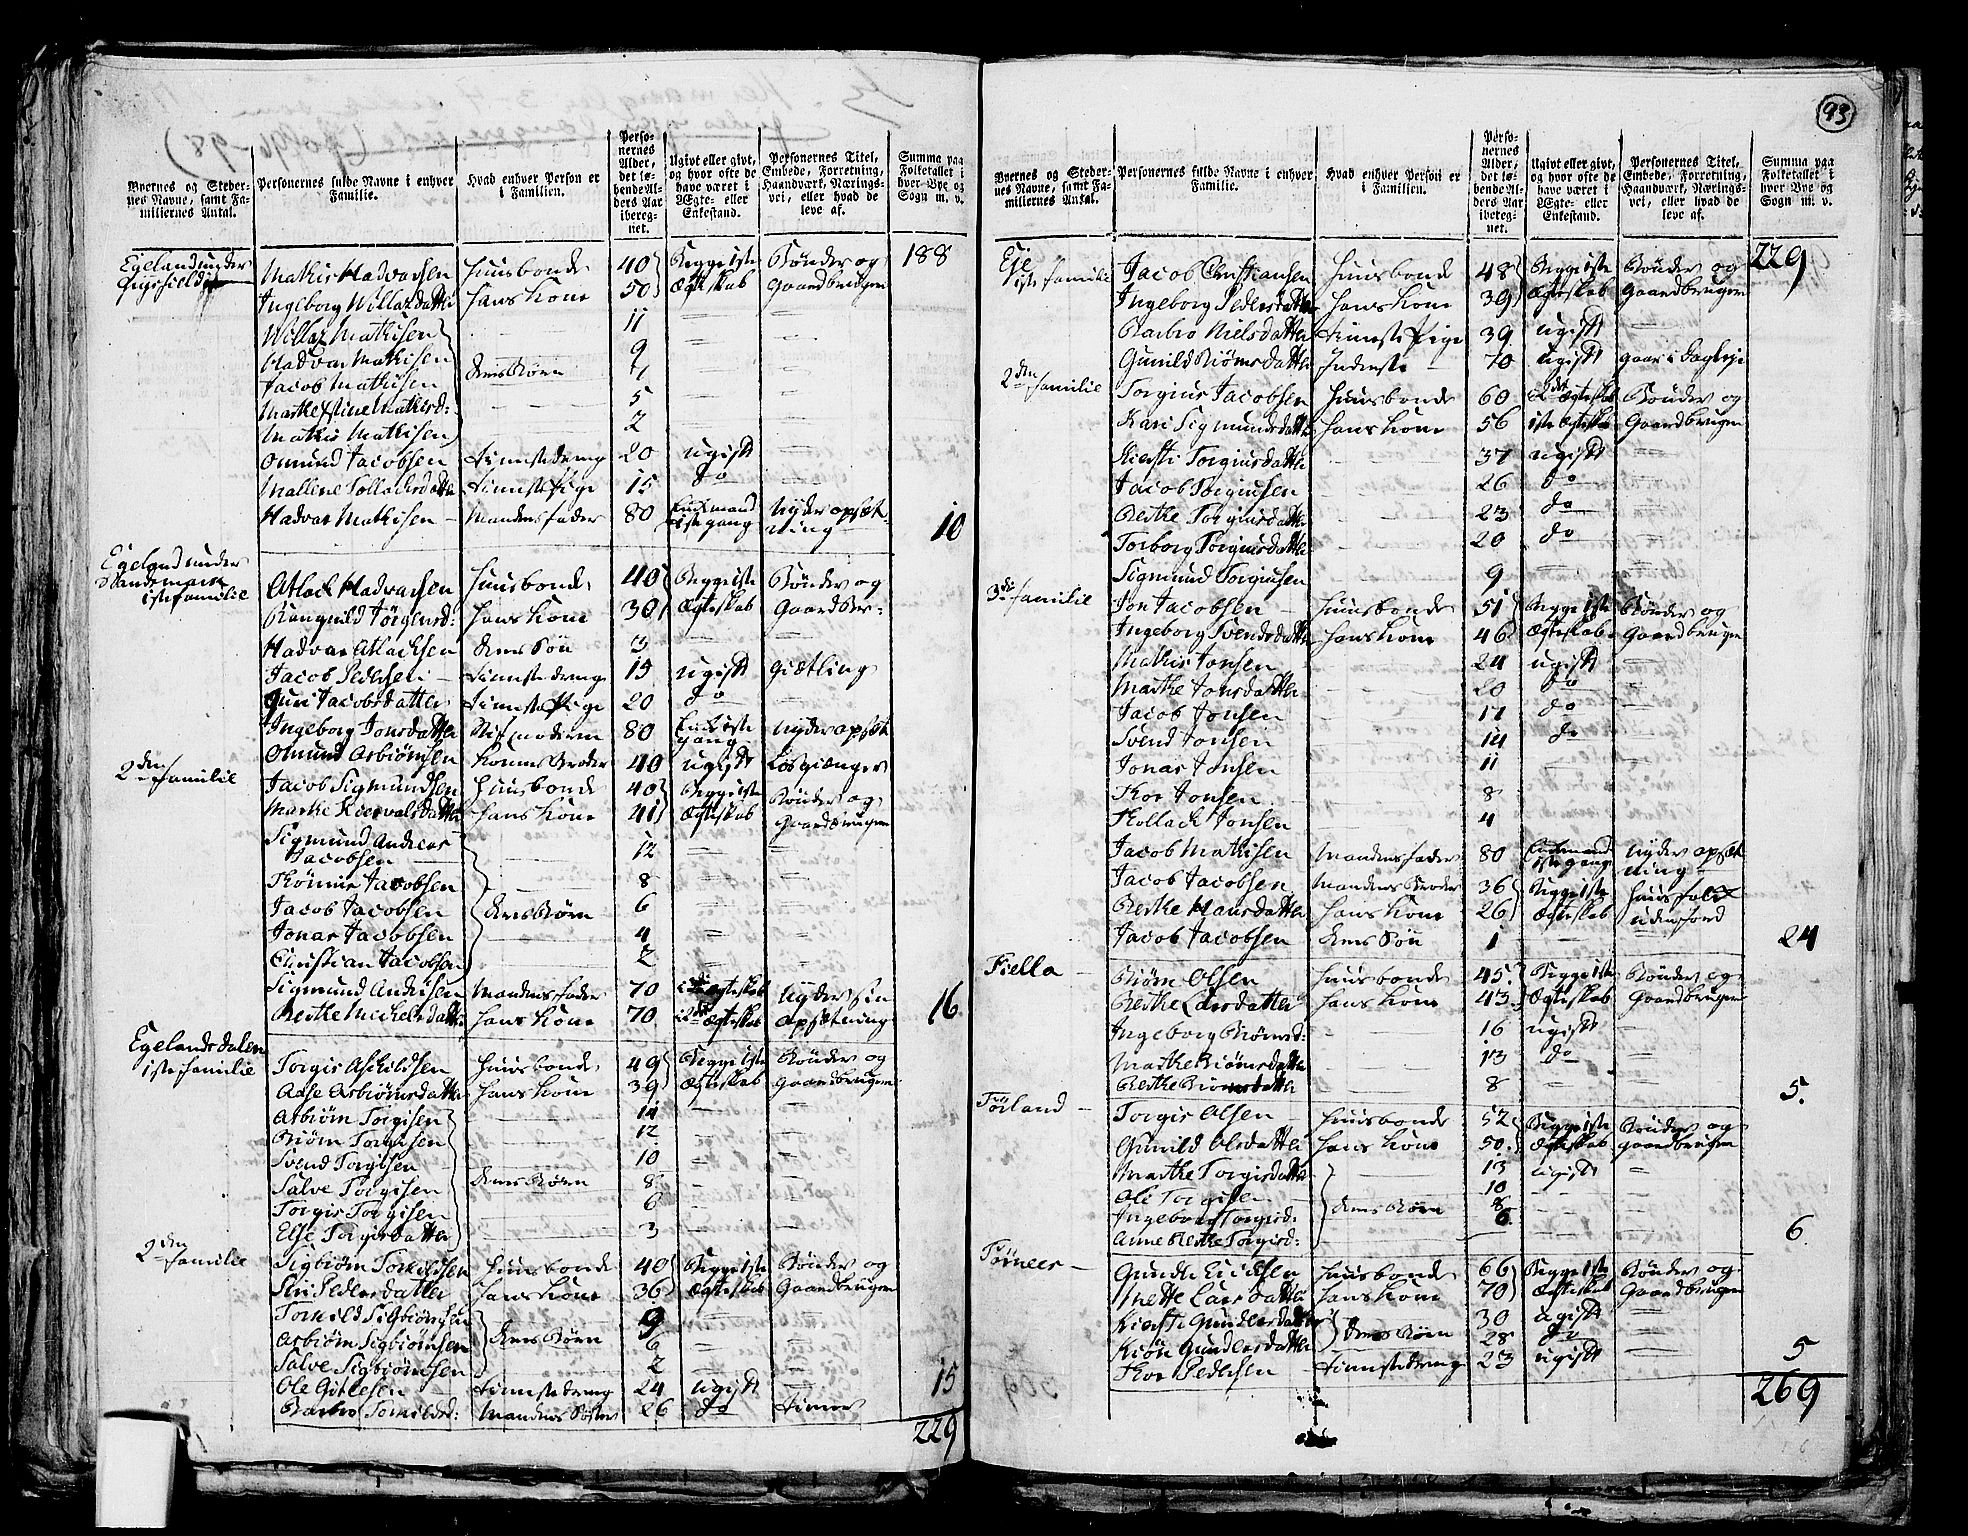 93
Byernes og Steder-
nes Navne, samt Fa-
miliernes Antal.
Personernes fulde Navne i enhver
Familie.
Hvad enhver Person er
i Familien.
Perso-
nernes
Alder,
det lø-
bende Al-
ders Aar
iberegn-
net.
Ugivt eller givt,
og hvor ofte de
have været i
Ægte- eller
Enkestand.
Personernes Titel,
Embede, Forretning,
Haandværk, Nærings-
vei, eller hvad de
leve af.
Summa paa
Folketallet i
hver Bye og
Sogn m. v.
Egeland under
Mathis Hadvarsen Huusbonde 40 Begge iste Bønder og 188
Ingeborg Willasdatter Hans Kone 50 Ægteskab Gaardbrugen
Willas Mathisen 11
Hadvar Mathisen 9
Jacob Mathisen Deres Børn 7
Marthe Stine Mathisd: 5
Mathis Mathisen 2
Omund Jacobsen Tieneste dreng 20 ugift
Mallene Tollachsdatter Tieneste Pige 15 do
Hadvar Mathisen Mandens fader 80 Enkemand iste gang Nyder opsæt-
ning 10
Egeland under
iste familie
Atlack Hadvarsen Huusbonde 40 Begge iste Bønder og
Rangnild Jørgensd: Hans Kone 30 Ægteskab Gaardbr:
Hadvar Atlacksen Deres Søn 3
Jacob Pedersen Tieneste dreng 15 ugift Giætling
Guri Jacobsdatter Tieneste Pige 20 do
Ingeborg Jonsdatter 80 Enke iste gang Nyder opsæt
Omund Asbiørnsen Konens Broder 40 ugift Løsgiænger
2den familie
Jacob Sigmundsen Huusbonde 40 Begge iste Bønder og
Marthe Hadvalsdatter Hans Kone 41 Ægteskab Gaardbrugen
Sigmund Andreas
Jacobsen 12
Thønnis Jacobsen 8
Jacob Jacobsen Deres Børn 6
Jonas Jacobsen 4
Christian Jacobsen 2
Sigmund Andersen Mandens fader 70 Ægteskab Nyder sin
Berthe Michelsdatter Hans Kone 70 2det Ægteskab opsætning 16
Egelandsdalen
iste familie
Torgis Aschildsen Huusbonde 49 Begge iste Bønder og
Aase Asbiørnsdatter Hans Kone 39 Ægteskab Gaardbrugen
Asbiørn Torgisen 14
Biørn Torgisen 12
Svend Torgisen 10
Salve Torgisen Deres Børn 8
Torgis Torgisen 6
Else Torgisdatter 3
2den familie
Sigbiørn Torkildsen Huusbonde 40 Begge iste Bønder og
Siri Pedersdatter Hans Kone 36 Ægteskab Gaardbrugen
Torkild Sigbiørnsen 9
Asbiørn Sigbiørnsen Deres Børn 6
Salve Sigbiørnsen 2
Ole Gitlesen Tieneste dreng 24 ugift
Barbro Torkildsd: Mandens Søster 26 do tiener 15
229
Byernes og Steder-
nes Navne, samt Fa-
miliernes Antal.
Personernes fulde Navne i enhver
Familie.
Hvad enhver Person er
i Familien.
Perso-
nernes
Alder,
det lø-
bende Al-
ders Aar
iberegn-
net.
Ugivt eller givt,
og hvor ofte de
have været i
Ægte- eller
Enkestand.
Personernes Titel,
Embede, Forretning,
Haandværk, Nærings-
vei, eller hvad de
leve af.
Summa paa
Folketallet i
hver Bye og
Sogn m. v.
Eje
iste familie
Jacob Christiansen Huusbonde 48 Begge iste Bønder og 229
Ingeborg Pedersdatter Hans Kone 39 Ægteskab Gaardbrugen
Barbro Nielsdatter Tieneste Pige 39 ugift
Gunild Biørnsdatter Inderste 70 ugift gaar i Dagleje
2den familie
Torgius Jacobsen Huusbonde 60 2det Ægteskab Bønder og
Kari Sigmundsdatter Hans Kone 56 iste Ægteskab Gaardbrugen
Kiersti Torgiusdatter 37 ugift
Jacob Torgiusen 26 do
Berthe Torgiusdatter 23 do
Torborg Torgiusdatter 20 do
Sigmund Torgiusen 9
3die familie
Jon Jacobsen Huusbonde 51 Begge iste Bønder og
Ingeborg Svendsdatter Hans Kone 46 Ægteskab Gaardbrugen
Mathis Jonsen 24 ugift
Marthe Jonsdatter 20 do
Jacob Jonsen 17 do
Svend Jonsen 14 do
Jonas Jonsen 11
Thor Jonsen 8
Thollack Jonsen 4
Jacob Mathisen Mandens fader 80 Enkemand iste gang Nyder opsæt
ning
Jacob Jacobsen Mandens Broder 36 Begge iste Huusfolk
Berthe Hansdatter Hans Kone 26 Ægteskab uden Jord
Jacob Jacobsen Deres Søn 1 24
Fiella
Biørn Olsen Huusbonde 45 Begge iste Bønder og
Berthe Larsdatter Hans Kone 43 Ægteskab Gaardbrugen
Ingeborg Biørnsd: 16 ugift
Marthe Biørnsdatter 13 do
Berthe Biørnsdatter 8 5.
Tørland
Torgis Olsen Huusbonde 52 Begge iste Bønder og
Gunild Olsdatter Hans Kone 50 Ægteskab Gaardbrugen
Marthe Torgisdatter 13 ugift
Ole Torgisen 10
Ingeborg Torgisd: Deres Børn 8
Anne Berthe Torgisd: 6 6.
Tørnees
Gunder Ericksen Huusbonde 66 Begge iste Bønder og
Mette Larsdatter Hans Kone 70 Ægteskab Gaardbrugen
Kiersti Gundersdatter Deres Børn 30 ugift
Kiøn Gundersdatter 28 do
Thor Pedersen Tieneste dreng 23 ugift 5
269